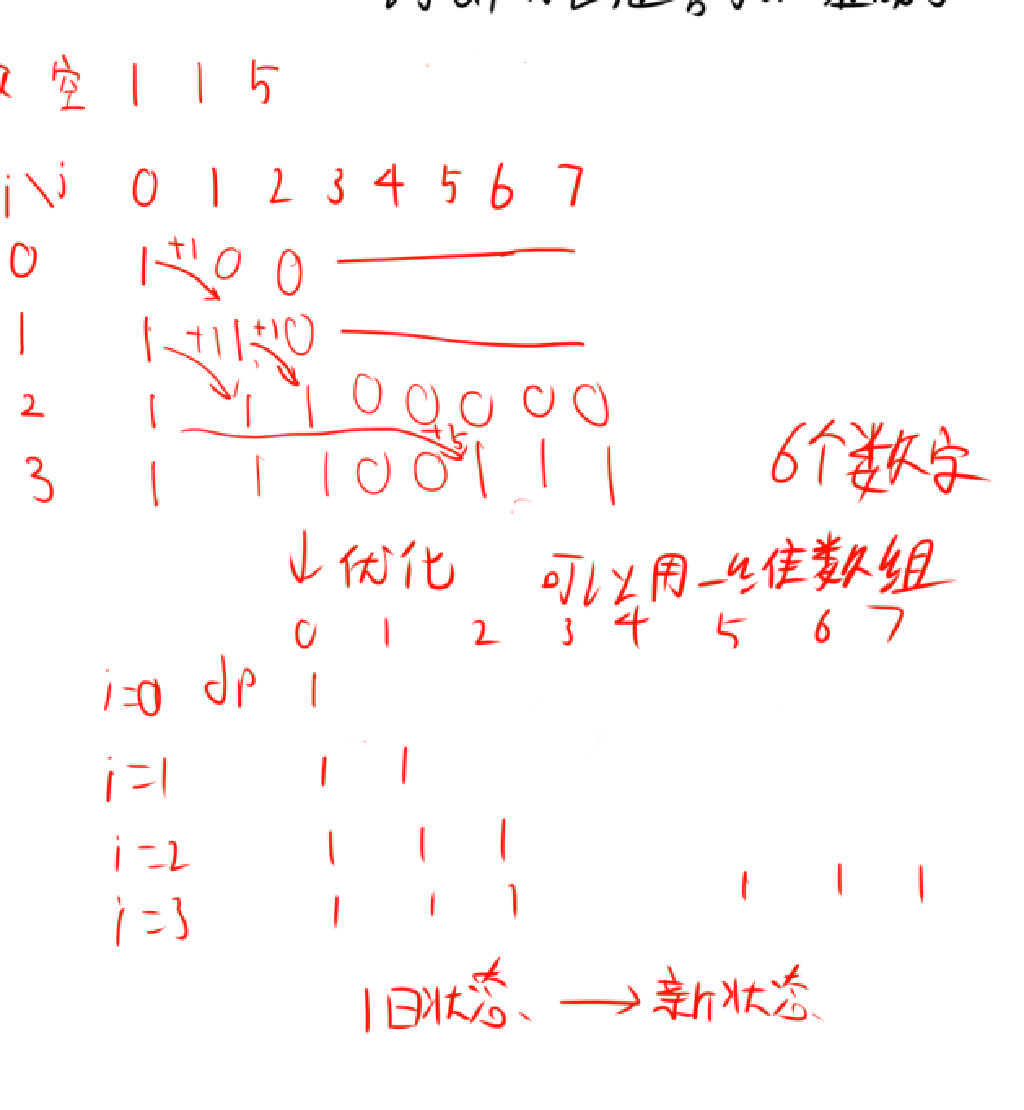 空 1 1 5
i\j 0 1 2 3 4 5 6 7
0 1 +1 0 0
1 1 +1 1 +1 0
2 1 1 1 0 0 0 0 0
+5
3 1 1 1 0 0 1 1 1 6个数字
↓优化 可以用一维数组
0 1 2 3 4 5 6 7
i=0 dp 1
i=1 1 1
i=2 1 1 1
i=3 1 1 1 1 1 1
旧状态、→新状态、